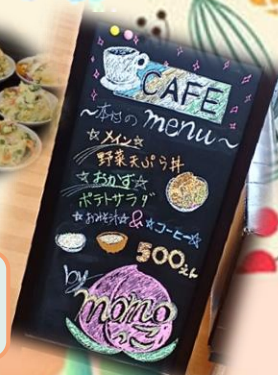 CAFE
～本日の menu～
☆メイン☆
野菜天ぷら丼
☆おかず☆
ポテトサラダ
☆おみそ汁☆ & ☆コーヒー☆
500えん
by
momo
っこ